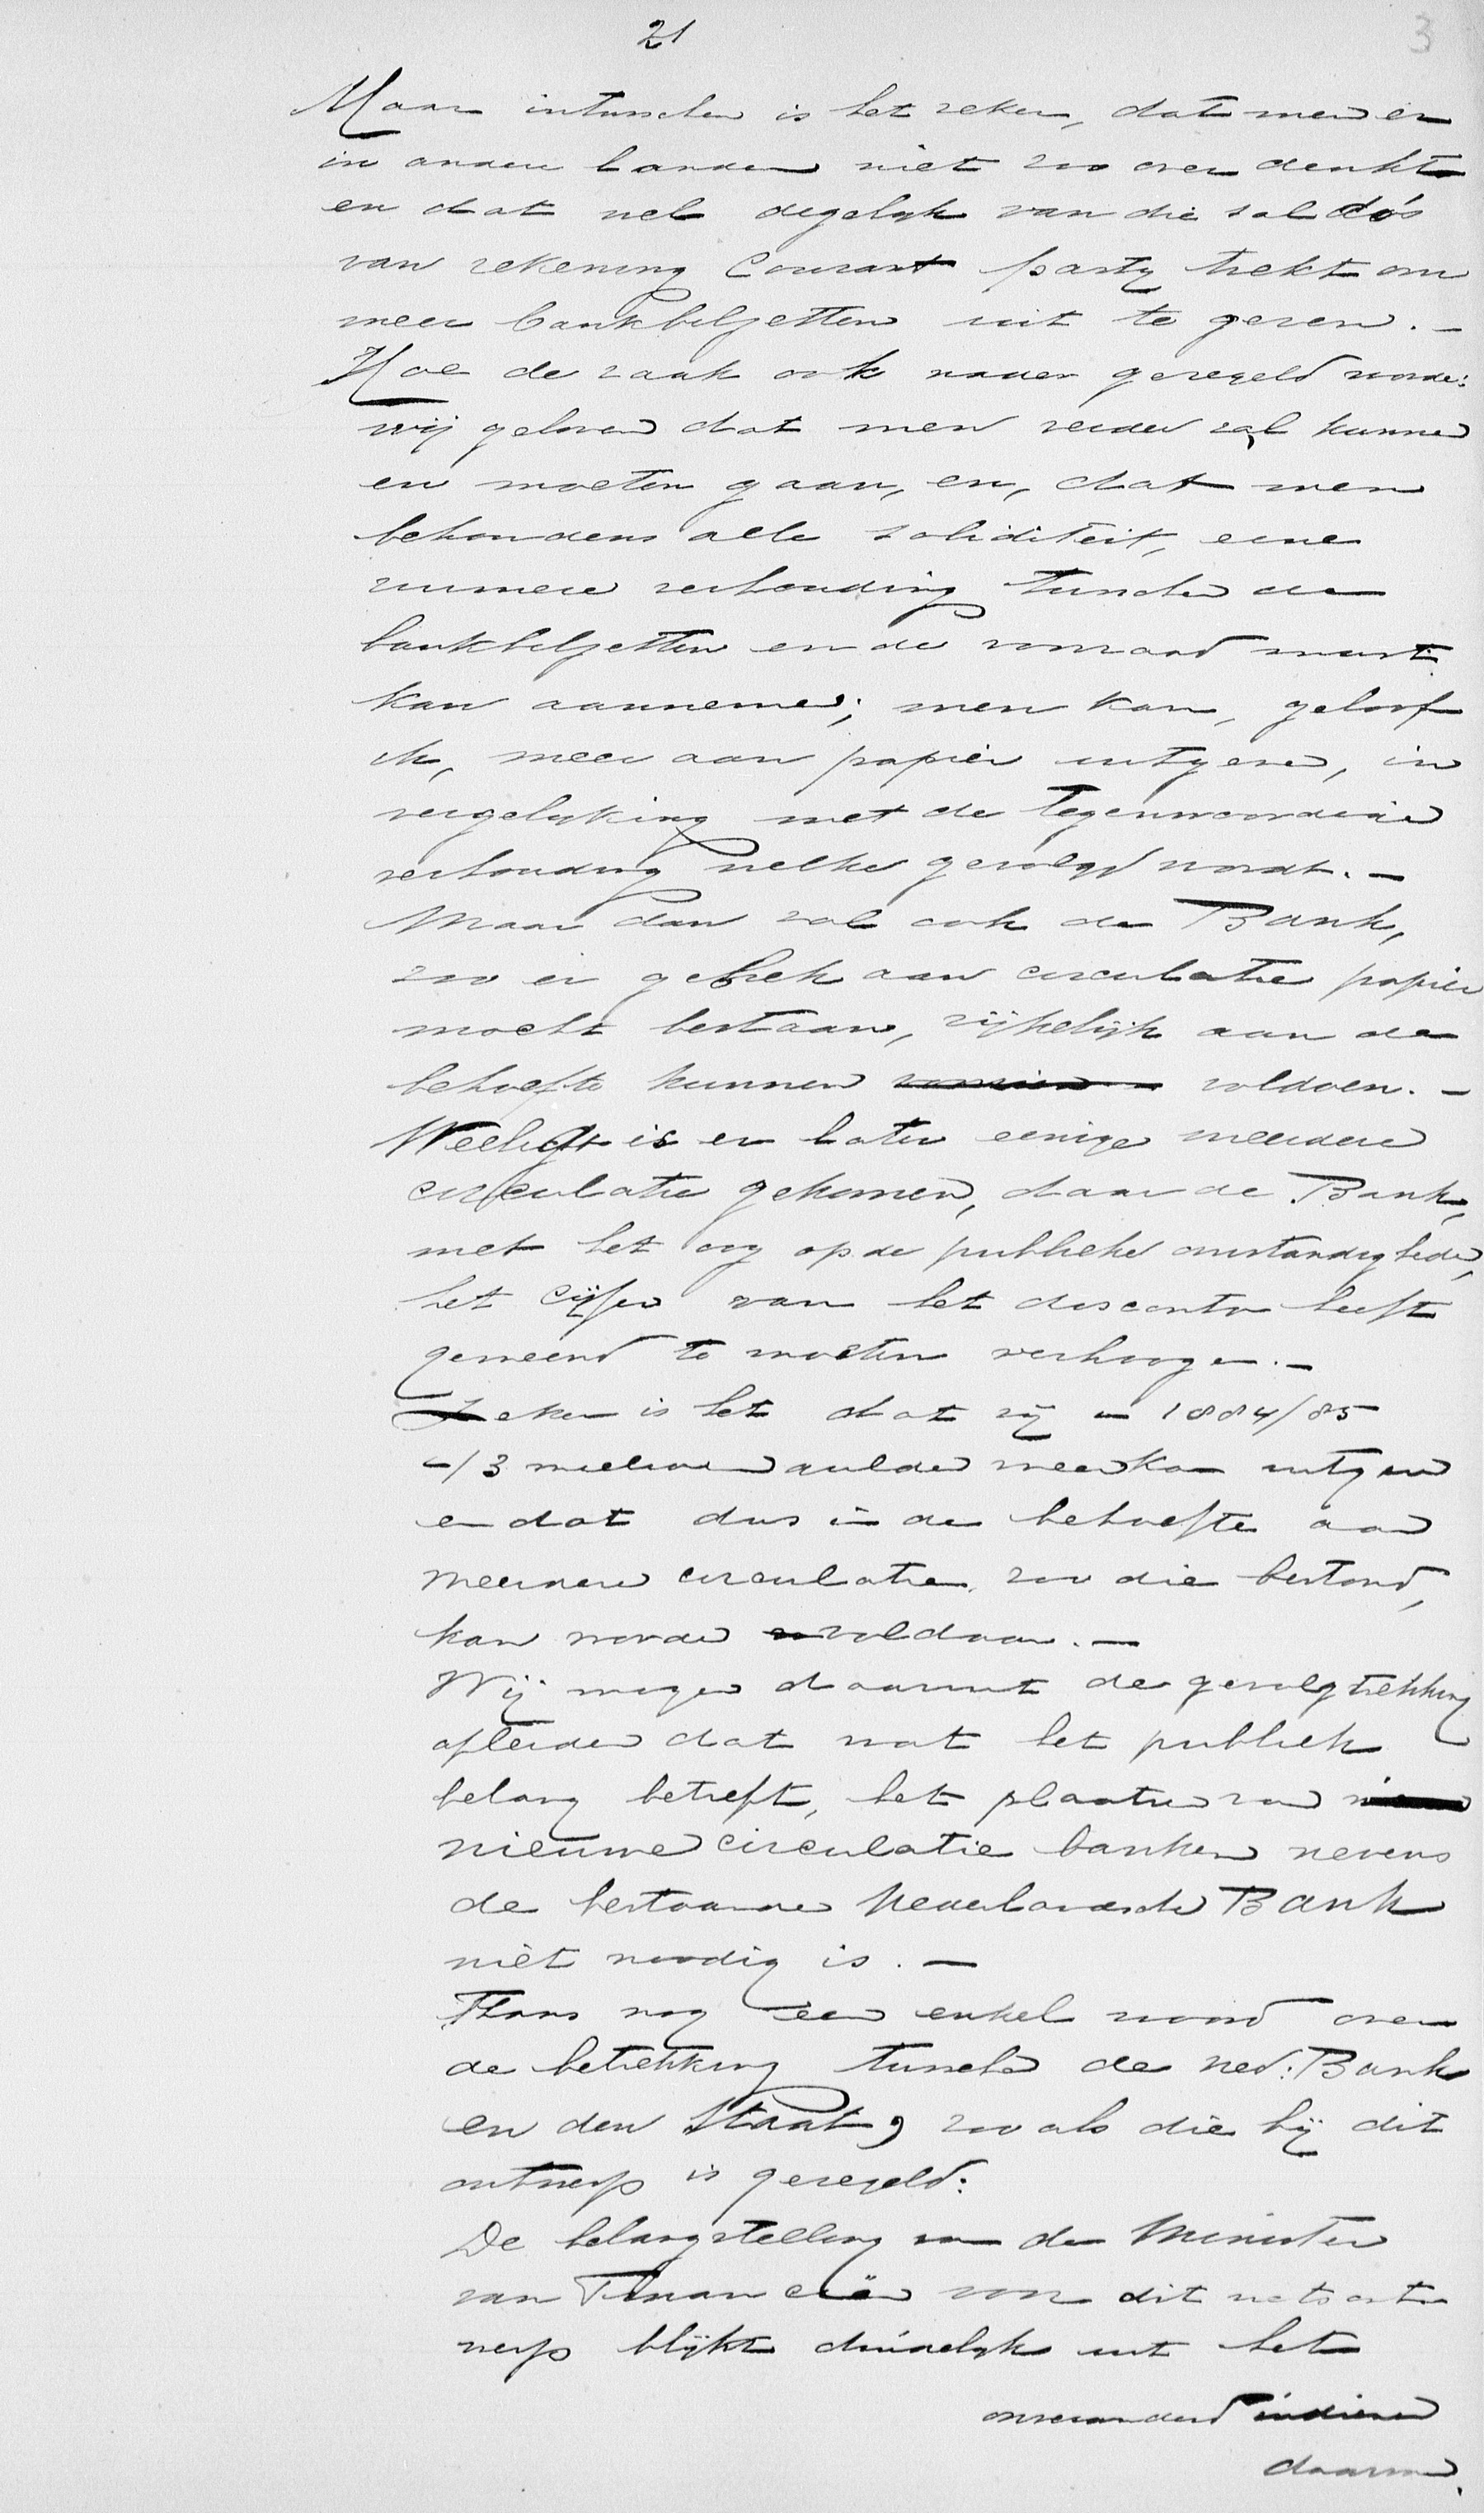 21
3
Maar intusschen is het zeker, dat men er
in andere landen niet zoo over denkt
en dat wel degelijk van die saldó's
van rekening Courant party trekt om
meer bankbiljetten uit te geven. -
Hoe de zaak ook nader geregeld worde:
wij gelooven dat men verder zal kunnen
en moeten gaan, en, dat men
behoudens alle soliditeit, eene
ruimere verhouding tusschen de
bankbiljetten en de voorraad munt
kan aannemen; men kan, geloof
ik, meer aan papier uitgeven, in
vergelyking met de tegenwoordige
verhouding welke gevolgd wordt. -
Maar dan zal ook de Bank,
zoo er gebrek aan circulatie papier
mocht bestaan, rijkelijk aan de
behoefte kunnen voldoen. -
Wellicht is er later eenige meerdere
circulatie gekomen, daar de Bank,
met het oog op de publieke omstandigheden,
het cijfer van het disconto heeft
gemeend te moeten verhoogen. -
Zeker is het dat zij in 1884/85
13 millioen gulden meer kon uitgeven
en dat dus in de behoefte aan
meerdere circulatie, zoo die bestond,
kon worden voldaan. -
Wij mogen daaruit de gevolgtrekking
afleiden dat wat het publiek
belang betreft, het plaatsen van
nieuwe circulatie banken nevens
de bestaande Nederlandsche Bank
niet noodig is. -
Thans nog een enkel woord over
de betrekking tusschen de Ned: Bank
en den Staat, zoo als die bij dit
ontwerp is geregeld:
De belangstelling van den Minister
van Financiën voor dit wets ont-
werp blijkt duidelijk uit het
onveranderd indienen
daarvan.